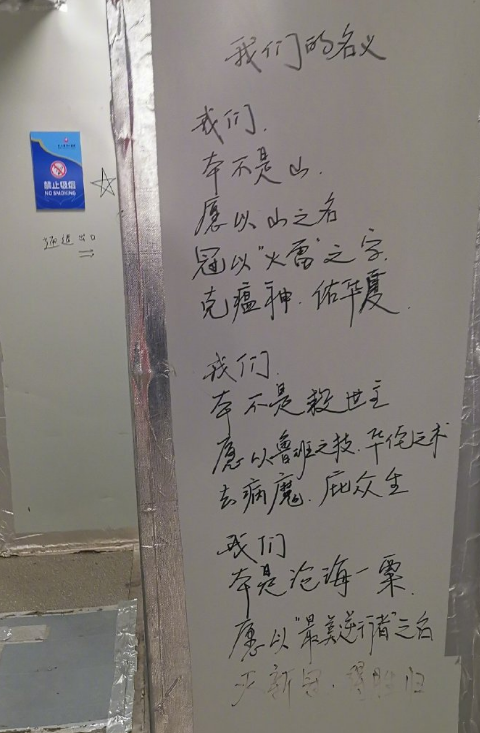 我们的名义
我们.
本不是山.
愿以山之名
冠以“火雷”之字.
克瘟神.佑华夏.
我们.
本不是救世主
愿以鲁班之技.华佗之术
去病魔.庇众生
我们
本是沧海一粟.
愿以“最美逆行者”之名
新冠.得胜归
禁止吸烟
NO SMOKING